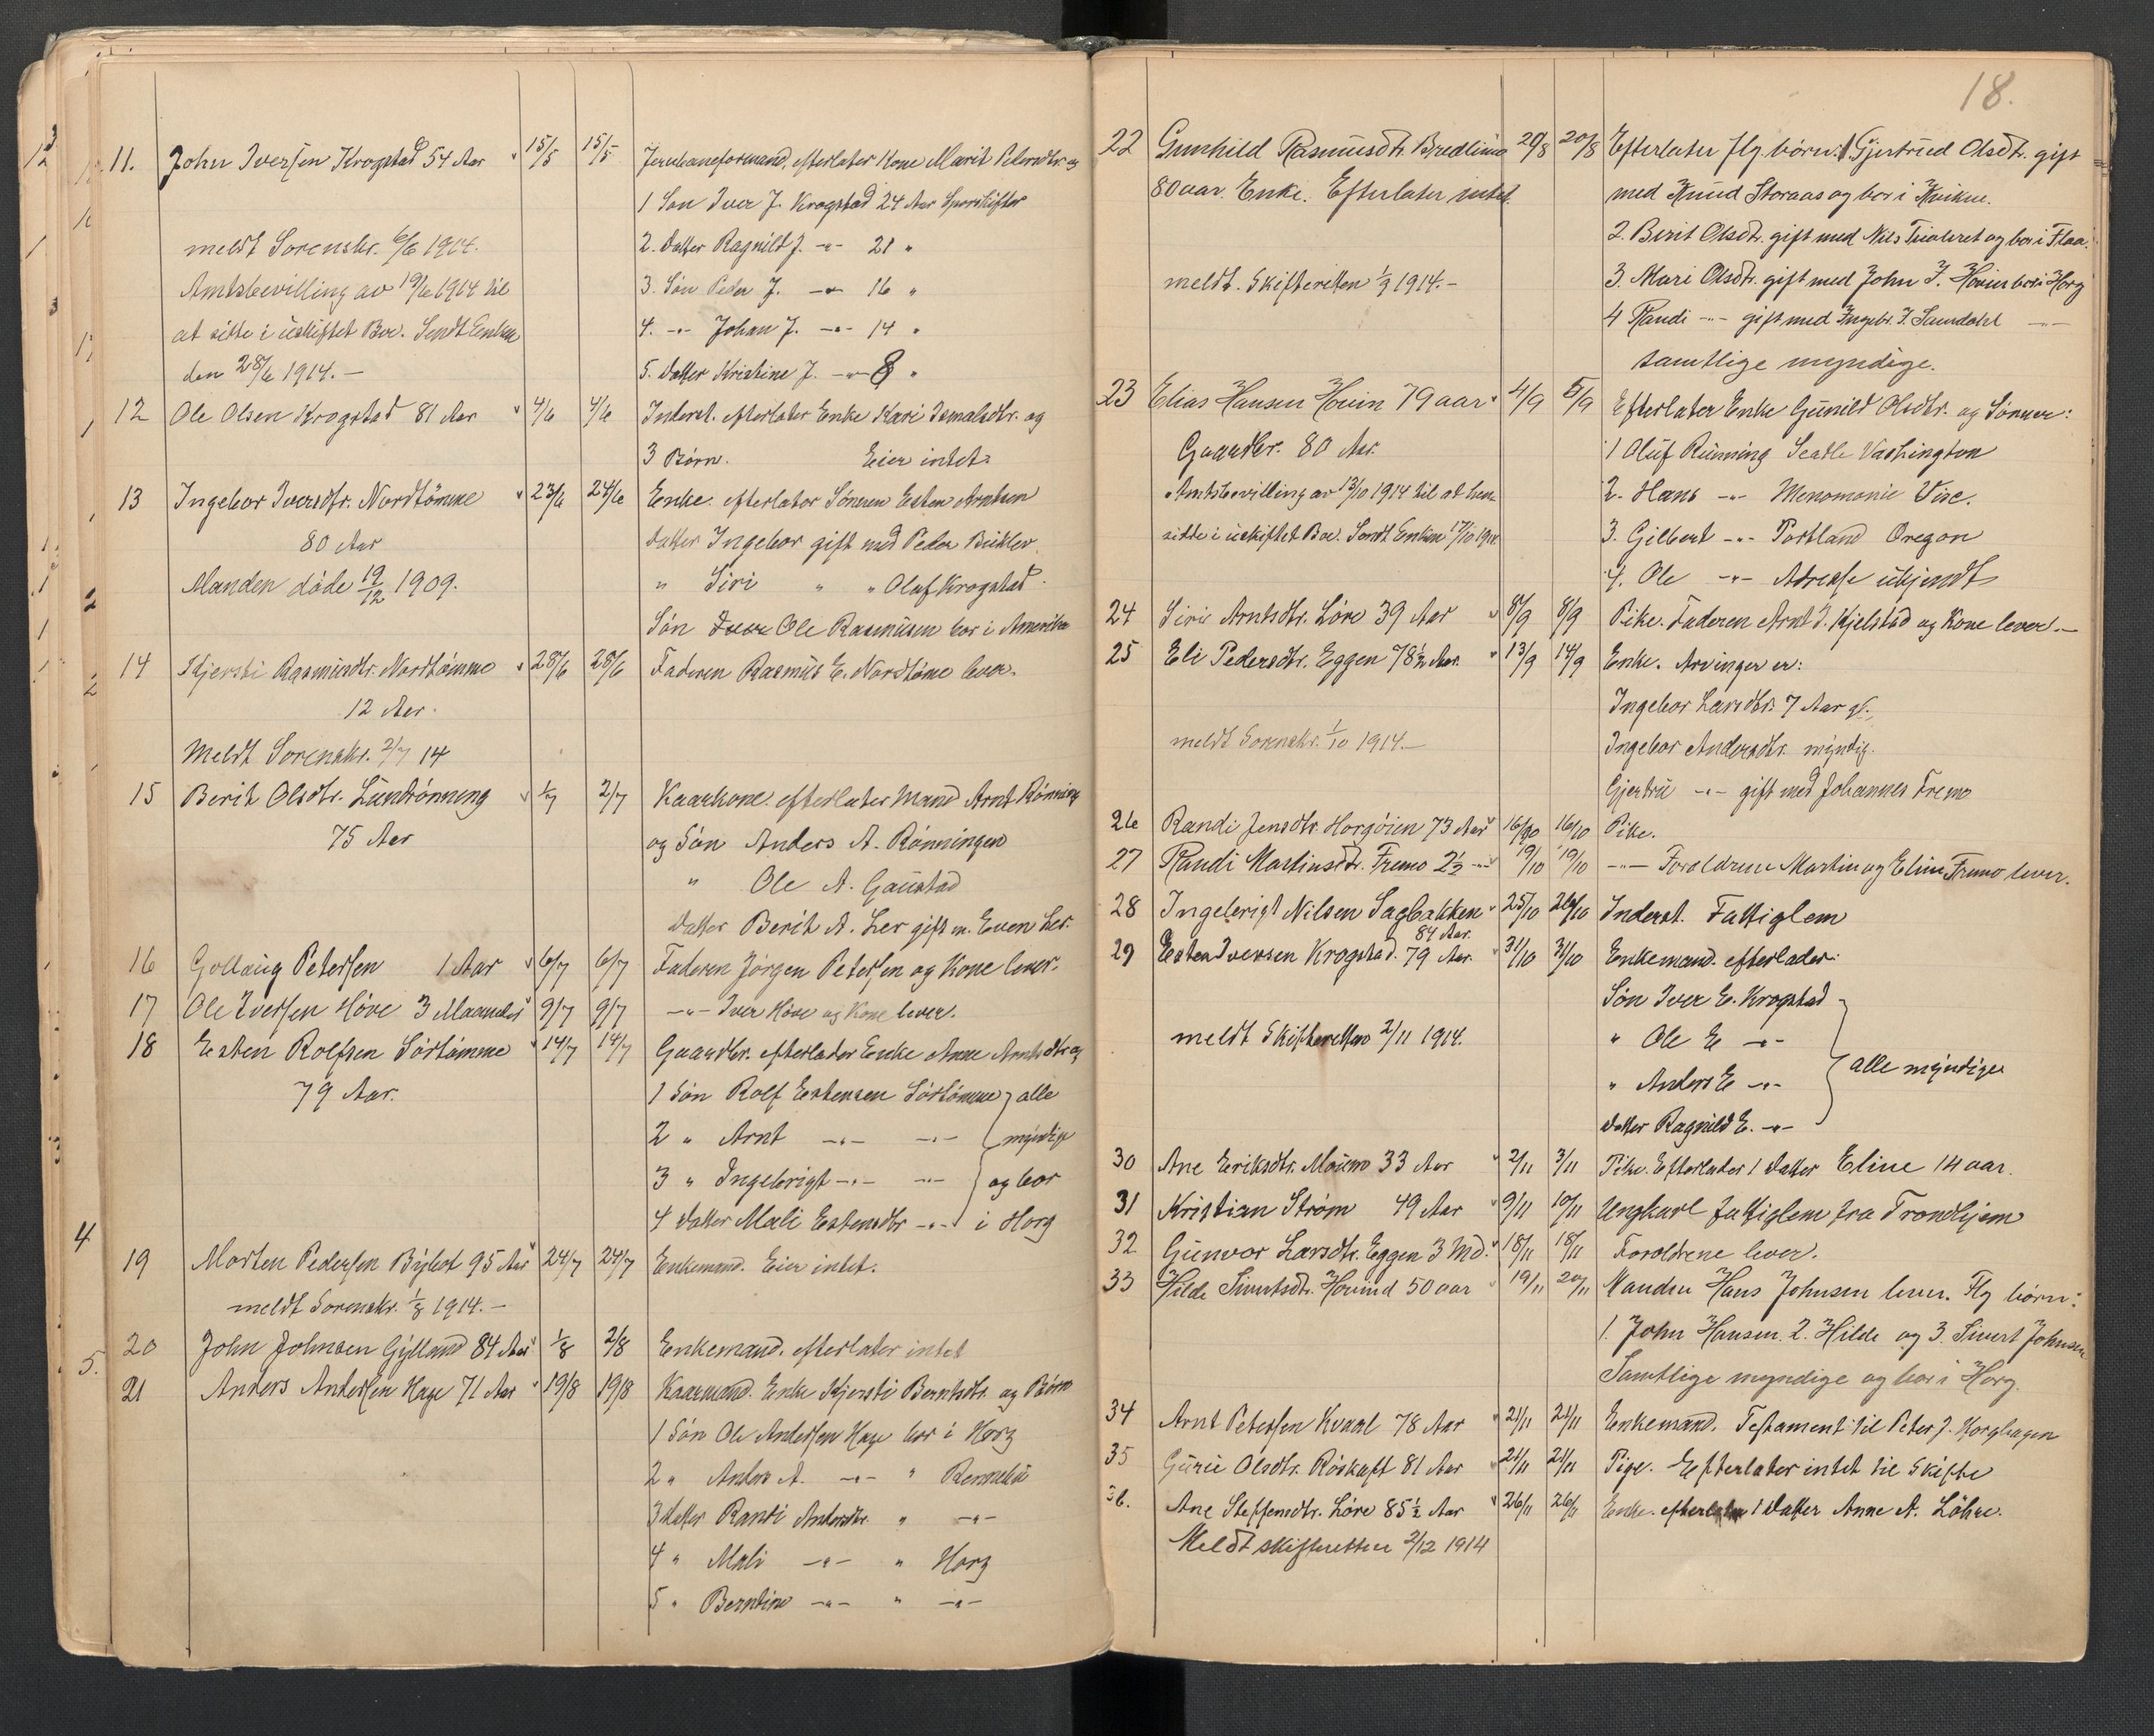 18.
11. John Iversen Krogstad 54 Aar 15/5 15/5 Jernbaneformand, efterlater Kone Marit Pedersdtr. og
1 Søn Iver J. Krogstad 24 Aar Sporskifter
meldt Sorenskr. 6/6 1914. 2. Datter Ragnild J. -"- 21 "
Amtsbevilling av 19/6 1914 til 3. Søn Peder J. -"- 16 "
at sitte i uskiftet Bo. Sendt Enken 4. -"- Johan J. -"- 14 "
den 28/6 1914. — 5. Datter Kristine J. -"- 8 "
12 Ole Olsen Krogstad 81 Aar 4/6 4/6 Inderst. efterlater Enke Kari Ismalsdtr. og
3 Børn. Eier intet.
13 Ingebor Iversdtr. Nordtømme 23/6 24/6 Enke. efterlater Sønnen Esten Arntsen
80 Aar Datter Ingebor gift med Peder
Manden døde 19/12 1909. " Siri " " Oluf Krogstad.
Søn Iver Ole Rasmusen bor i Amerika
14 Kjersti Rasmusdtr. Nordtømme 28/6 28/6 Faderen Rasmus E. Nordtøme lever.
12 Aar.
Meldt Sorenskr. 2/7 14
15 Berit Olsdtr. Lundrønning 1/7 2/7 Kaarkone. efterlater Mand Arnt Rønning
75 Aar og Søn Anders A. Rønningen
" Ole A. Gaustad
Datter Berit A. Ler gift m. Even Ler.
16 Gollaug Petersen 1 Aar 6/7 6/7 Faderen Jørgen Petersen og Kone lever.
17 Ole Iversen Høve 3 Maaneder 9/7 9/7 -"- Iver Høve og Kone lever.
18 Esten Rolfsen Sørtømme 14/7 14/7 Gaardbr. efterlader Enke Anne Arntsdtr. og
79 Aar. 1 Søn Rolf Estensen Sørtømme } alle
2 " Arnt -"- -"- myndige
3 " Ingebrigt -"- -"- og bor
4 Datter Mali Estensdtr -"- i Horg
19 Morten Pedersen Bybot 95 Aar 24/7 24/7 Enkemand. Eier intet.
meldt Sorenskr. 1/8 1914. —
20 John Johnsen Gylland 84 Aar 1/8 2/8 Enkemand. efterlater intet
21 Anders Andersen Hage 71 Aar 19/8 19/8 Kaarmand. Enke Kjersti Berntsdtr. og Børn
1 Søn Ole Andersen Hage bor i Horg
2 " Anders A. -"- " Rennebu
3 Datter Randi Andersdtr. " -"-
4 " Mali -"- " Horg
5 " Berntine -"- " -"-
22 Gunhild Rasmusdtr. Bredlina 20/8 20/8 Efterlater flg. børn: 1. Gjertrud Olsdtr. gift
80 aar. Enke. Efterlater intet. med Knud Storaas og bor i Kvikne.
2. Berit Olsdtr. gift med Nils og bor i Flaa.
meldt. Skifteretten 1/9 1914. — 3. Mari Olsdtr. gift med John J. Hovin bor i Horg
4 Randi -"- gift med Ingebr. J. Samdahl -"-
samtlige myndige.
23 Elias Hansen Hovin 79 aar 4/9 5/9 Efterlater Enke Gunild Olsdtr. og Sønner:
Gaardbr. 80 Aar. 1 Oluf Rünning Seatle Vashington
Amtsbevilling av 13/10 1914 til at hen 2. Hans -"- Menomonie Visc.
sitte i uskiftet Bo. Sendt Enken 17/10 1914. 3. Gilbert -"- Portland Oregon
4. Ole -"- Adresse ukjendt
24 Siri Arntsdtr. Løre 39 Aar 8/9 8/9 Pike. Faderen Arnt J. Kjelstad og Kone lever. —
25 Eli Pedersdtr. Eggen 78½ Aar. 13/9 14/9 Enke. Arvinger er:
Ingebor Larsdtr. 7 Aar gl.,
meldt Sorenskr. 1/10 1914. — Ingebor Andersdtr. myndig.
Gjertru -"- gift med Johannes Fremo
26 Randi Jensdtr. Horgøien 73 Aar 16/10 16/10 Pike.
27 Randi Martinsdtr. Fremo 2½ -"- 19/10 19/10 -"- Foreldrene Martin og Eline Fremo lever.
28 Ingebrigt Nilsen Sagbakken 25/10 26/10 Inderst. Fattiglem
84 Aar.
29 Esten Iversen Krogstad. 79 Aar. 31/10 31/10 Enkemand. efterlader:
Søn Iver E. Krogstad
meldt Skifteretten 2/11 1914. " Ole E -"-
" Anders E -"- } alle myndige
Datter Ragnild E. -"-
30 Ane Eriksdtr. Moumo 33 Aar 2/11 3/11 Pike. Efterlader 1 Datter Eline 14 aar.
31 Kristian Strøm 49 Aar 9/11 10/11 Ungkarl fattiglem fra Trondhjem
32 Gunvor Larsdtr. Eggen 3 Md. 18/11 18/11 Foreldrene lever.
33 Hilde Sivertsdtr. Hovind 50 aar 19/11 20/11 Manden Hans Johnsen lever. Flg børn:
1. John Hansen. 2. Hilde og 3. Sivert Johnsen
Samtlige myndige og bor i Horg.
34 Arnt Petersen Kvaal 78 Aar 21/11 21/11 Enkemand. Testament til Peter J. Horghagen
35 Gurie Olsdtr. Røskaft 81 Aar 21/11 21/11 Pige. Efterlater intet til Skifte
36. Ane Steffensdtr. Løre 85½ Aar 26/11 26/11 Enke. efterlater 1 Datter Anne A. Løhre.
Meldt skifteretten 2/12 1914